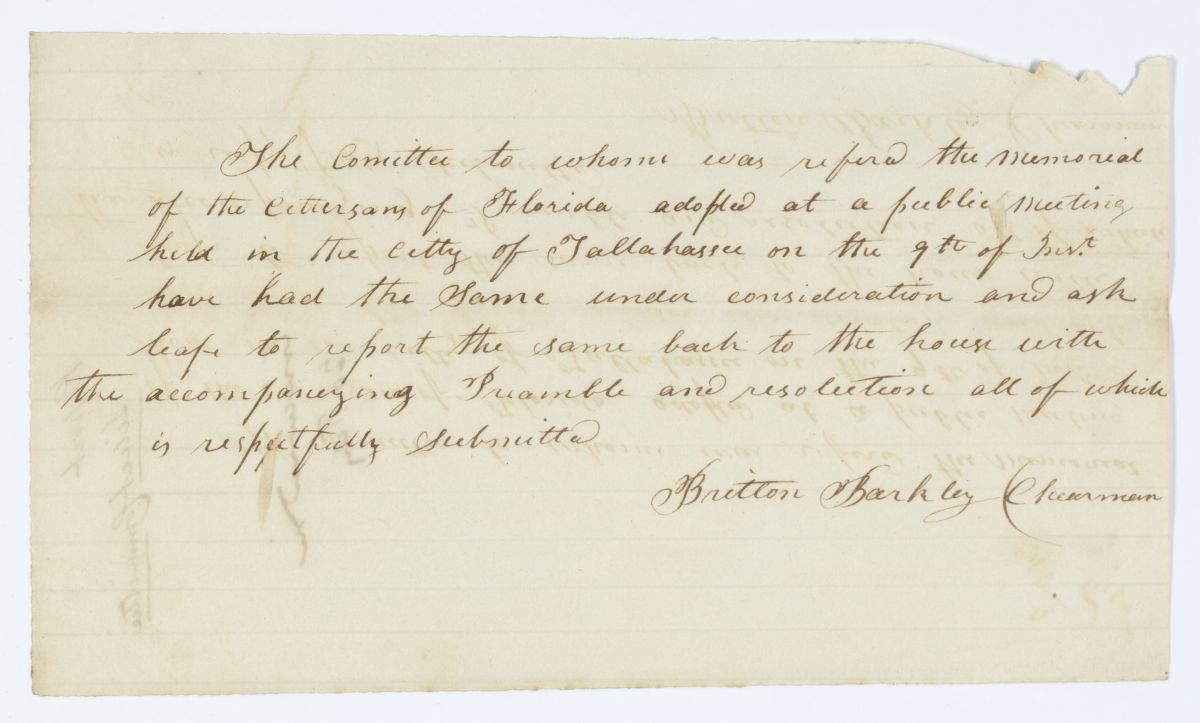 The Comittee to whome was referd the memorial
of the Cittersans of Florida adopted at a public meeting
held in the Citty of Tallahassee on the 9th of Inst.
have had the same under consideration and ask
leafe to report the same back to the house with
the accompanezing Preamble and resolection all of which
is respetfully submitted
Britton Barkley Chearman